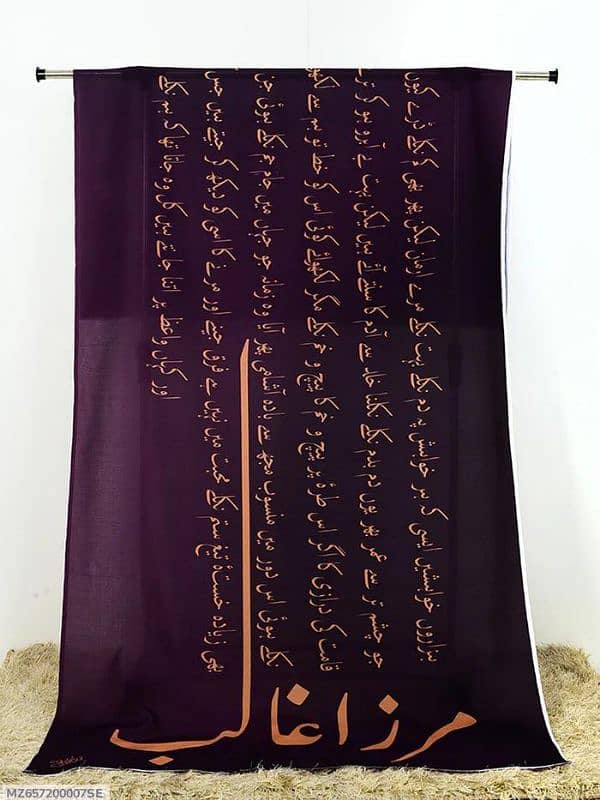 ہزاروں خواہشیں ایسی کہ ہر خواہش پہ دم نکلے بہت نکلے مرے ارمان لیکن پھر بھی کم نکلے ڈرے کیوں
جو چشم تر سے عمر بھر یوں دم بدم نکلے نکلنا خلد سے آدم کا سنتے آئے ہیں لیکن بہت بے آبرو ہو کر ترے
قامت کی درازی کا اگر اس طرۂ پر پیچ و خم کا پیچ و خم نکلے مگر لکھوائے کوئی اس کو خط تو ہم سے لکھوا
نکلے ہوئی اس دور میں منسوب مجھ سے بادہ آشامی پھر آیا وہ زمانہ جو جہاں میں جام جم نکلے ہوئی جن
بھی زیادہ خستۂ تیغ ستم نکلے محبت میں نہیں ہے فرق جینے اور مرنے کا اسی کو دیکھ کر جیتے ہیں جس
اور کہاں واعظ پر اتنا جانتے ہیں کل وہ جاتا تھا کہ ہم نکلے
مرزا غالب
MZ65720007SE